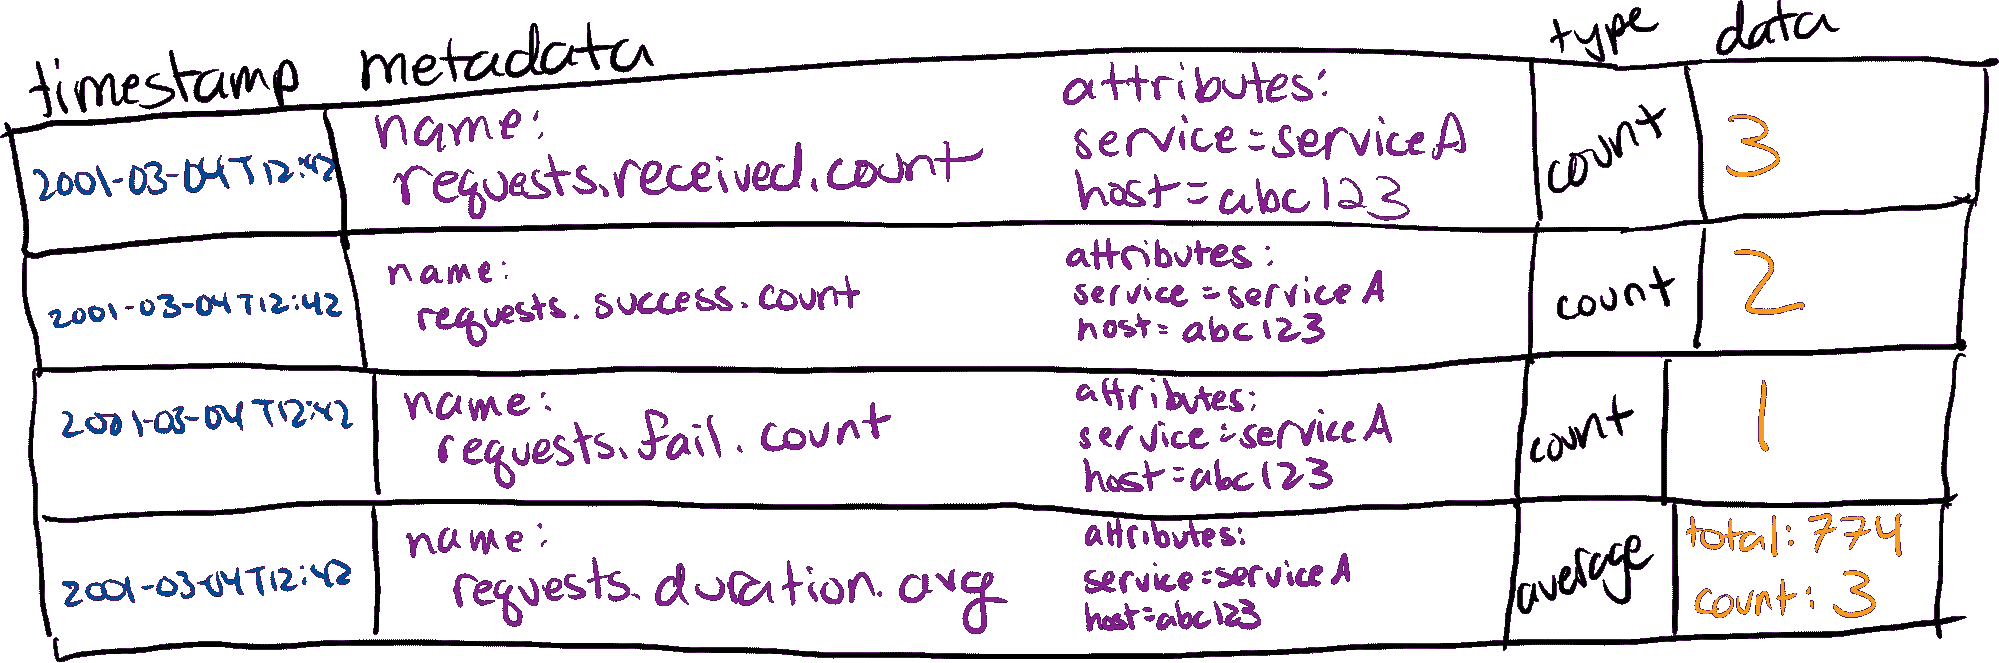 timestamp metadata type data
2001-03-04T12:42
name:
requests.received.count
attributes:
service=serviceA
host=abc123
count
3
2001-03-04T12:42
name:
requests.success.count
attributes:
service=serviceA
host=abc123
count
2
2001-03-04T12:42
name:
requests.fail.count
attributes:
service=serviceA
host=abc123
count
1
2001-03-04T12:42
name:
requests.duration.avg
attributes:
service=serviceA
host=abc123
average
total: 774
count: 3